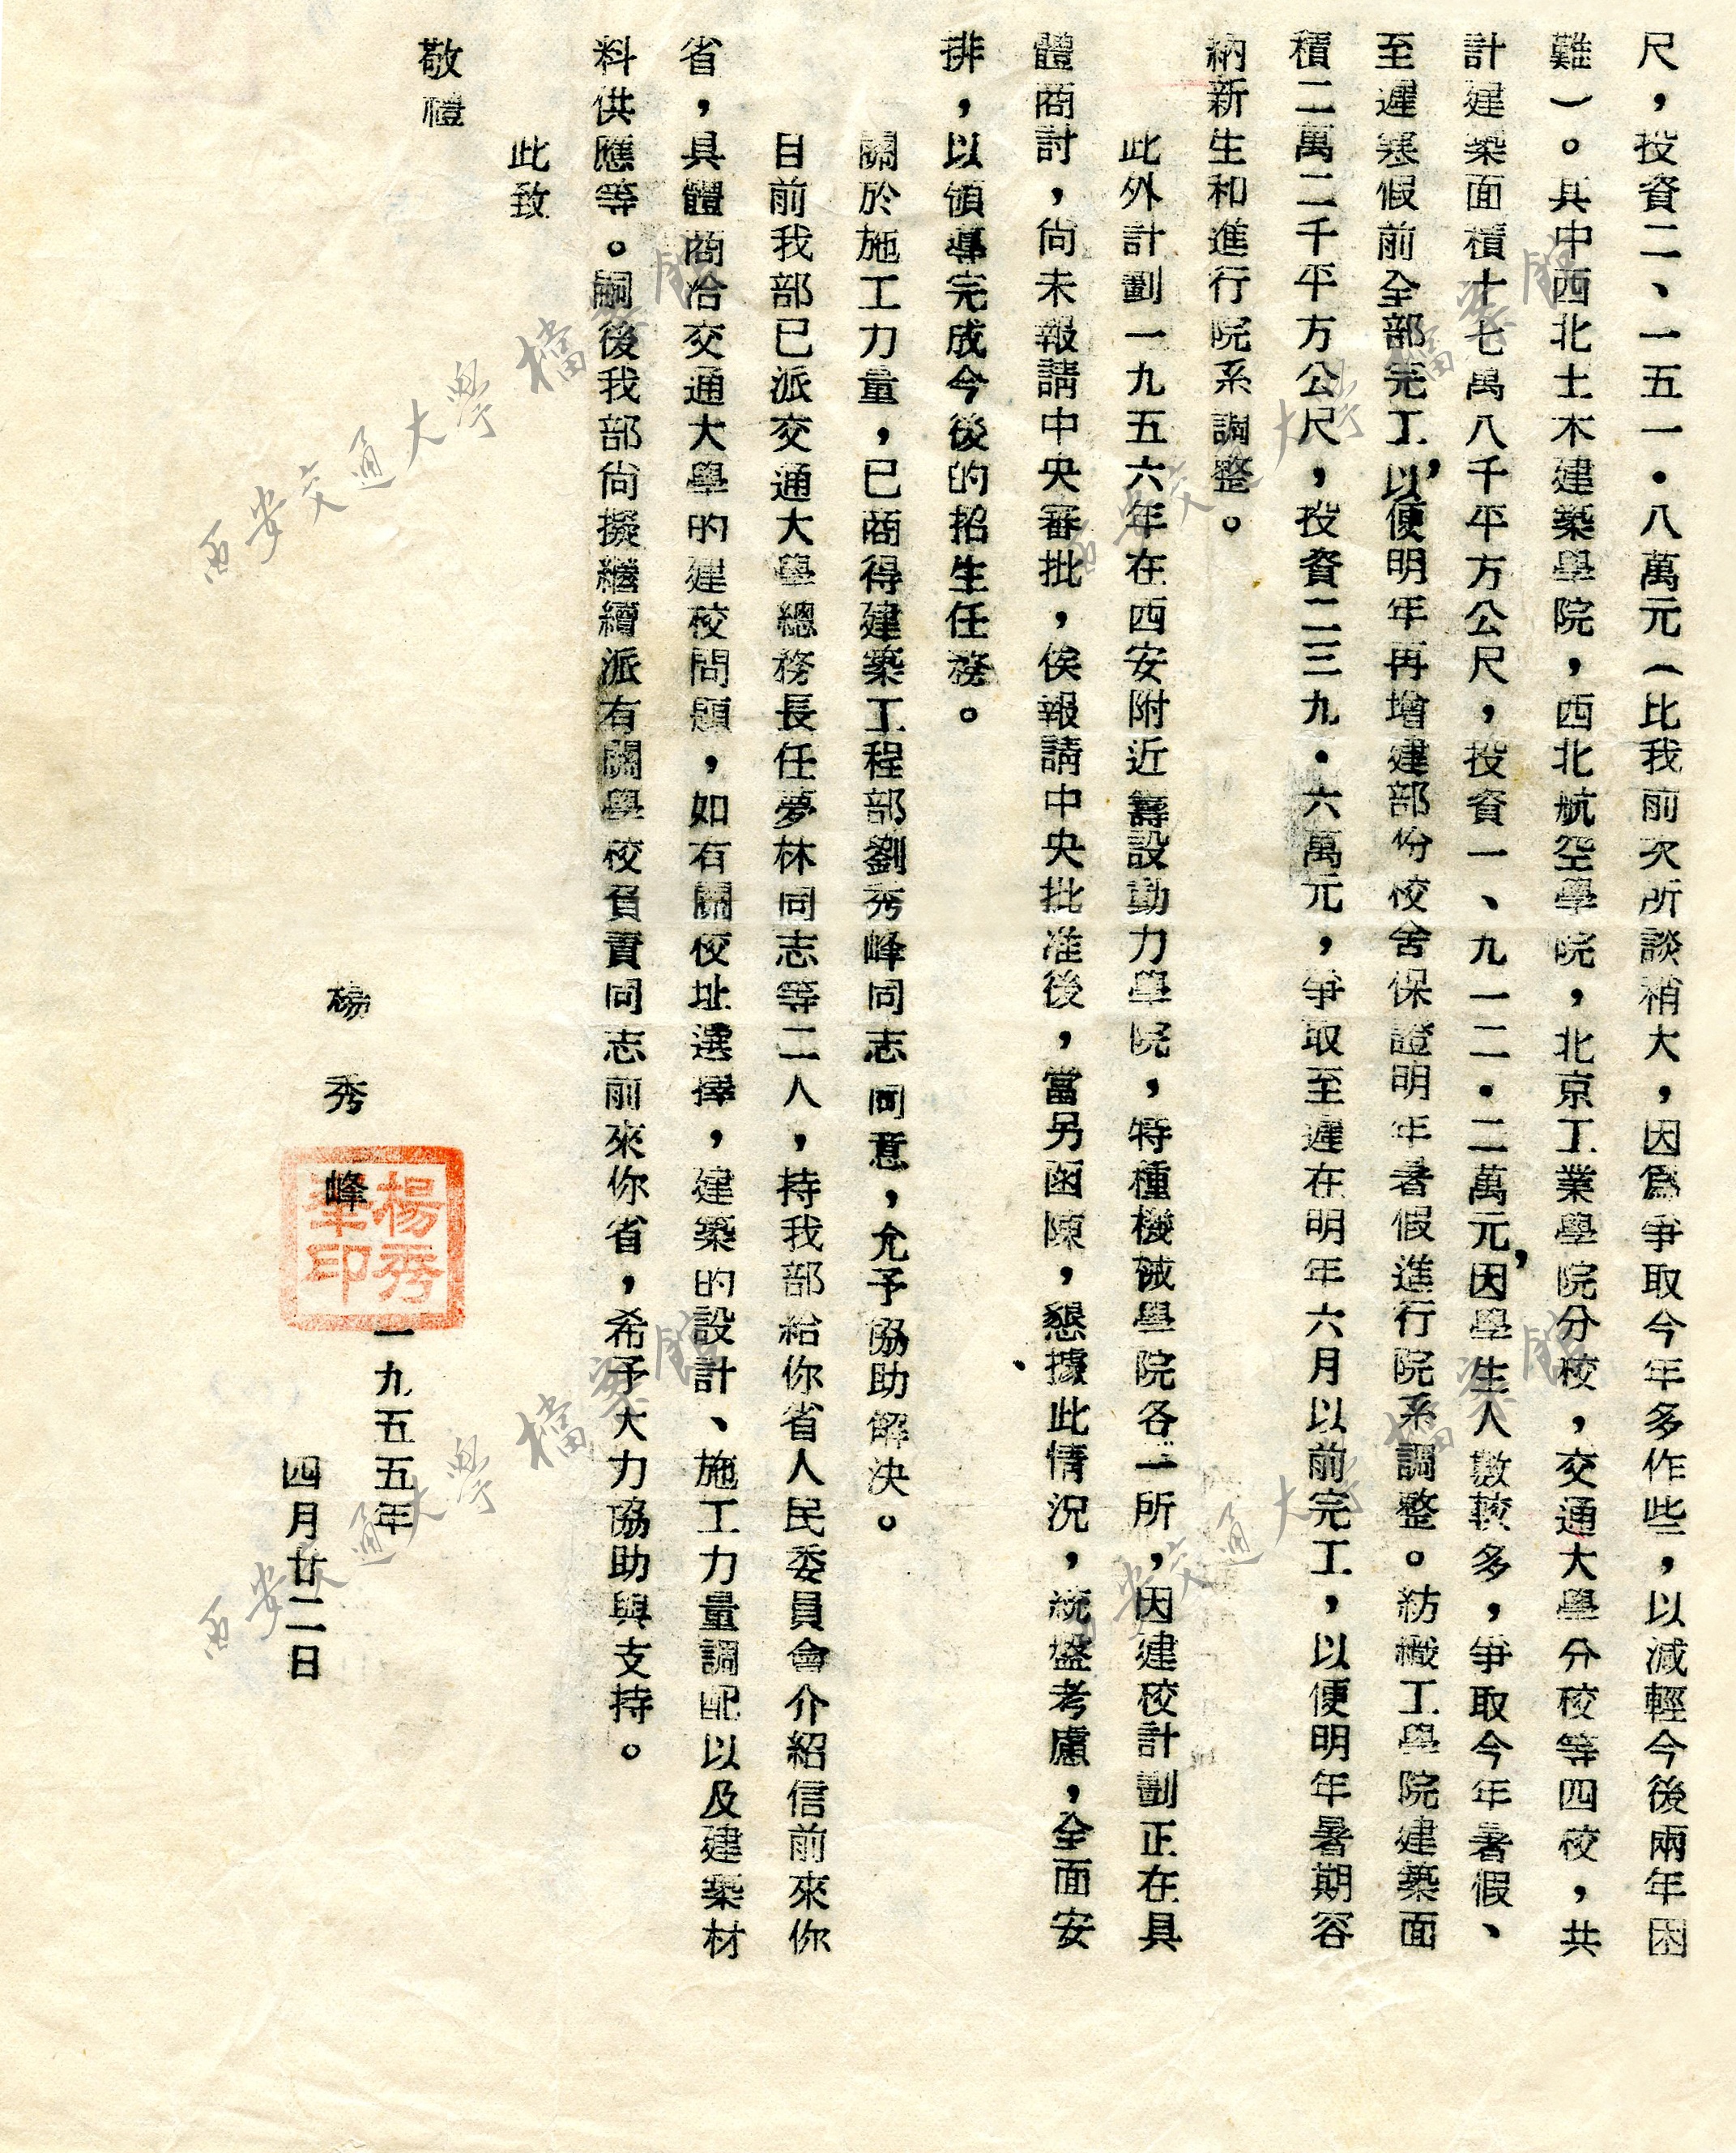 尺，投資二、一五一．八萬元（比我前次所談稍大，因爲爭取今年多作些，以減輕今後兩年困
難）。其中西北土木建築學院，西北航空學院，北京工業學院分校，交通大學分校等四校，共
計建築面積十七萬八千平方公尺，投資一、九一二．二萬元，因學生人數較多，爭取今年暑假、
至遲寒假前全部完工，以便明年再增建部份校舍保證明年暑假進行院系調整。紡織工學院建築面
積二萬二千平方公尺，投資二三九．六萬元，爭取至遲在明年六月以前完工，以便明年暑期容
納新生和進行院系調整。
此外計劃一九五六年在西安附近籌設動力學院，特種機械學院各一所，因建校計劃正在具
體商討，尚未報請中央審批，俟報請中央批准後，當另函陳，懇據此情況，統盤考慮，全面安
排，以領導完成今後的招生任務。
關於施工力量，已商得建築工程部劉秀峰同志同意，允予協助解決。
目前我部已派交通大學總務長任夢林同志等二人，持我部給你省人民委員會介紹信前來你
省，具體商洽交通大學的建校問題，如有關校址選擇，建築的設計、施工力量調配以及建築材
料供應等。嗣後我部尚擬繼續派有關學校負責同志前來你省，希予大力協助與支持。
此致
敬禮
楊秀峰
楊秀峯印
一九五五年
四月廿二日
西安交通大學檔案館
西安交通大學檔案館
西安交通大學檔案館
西安交通大學檔案館